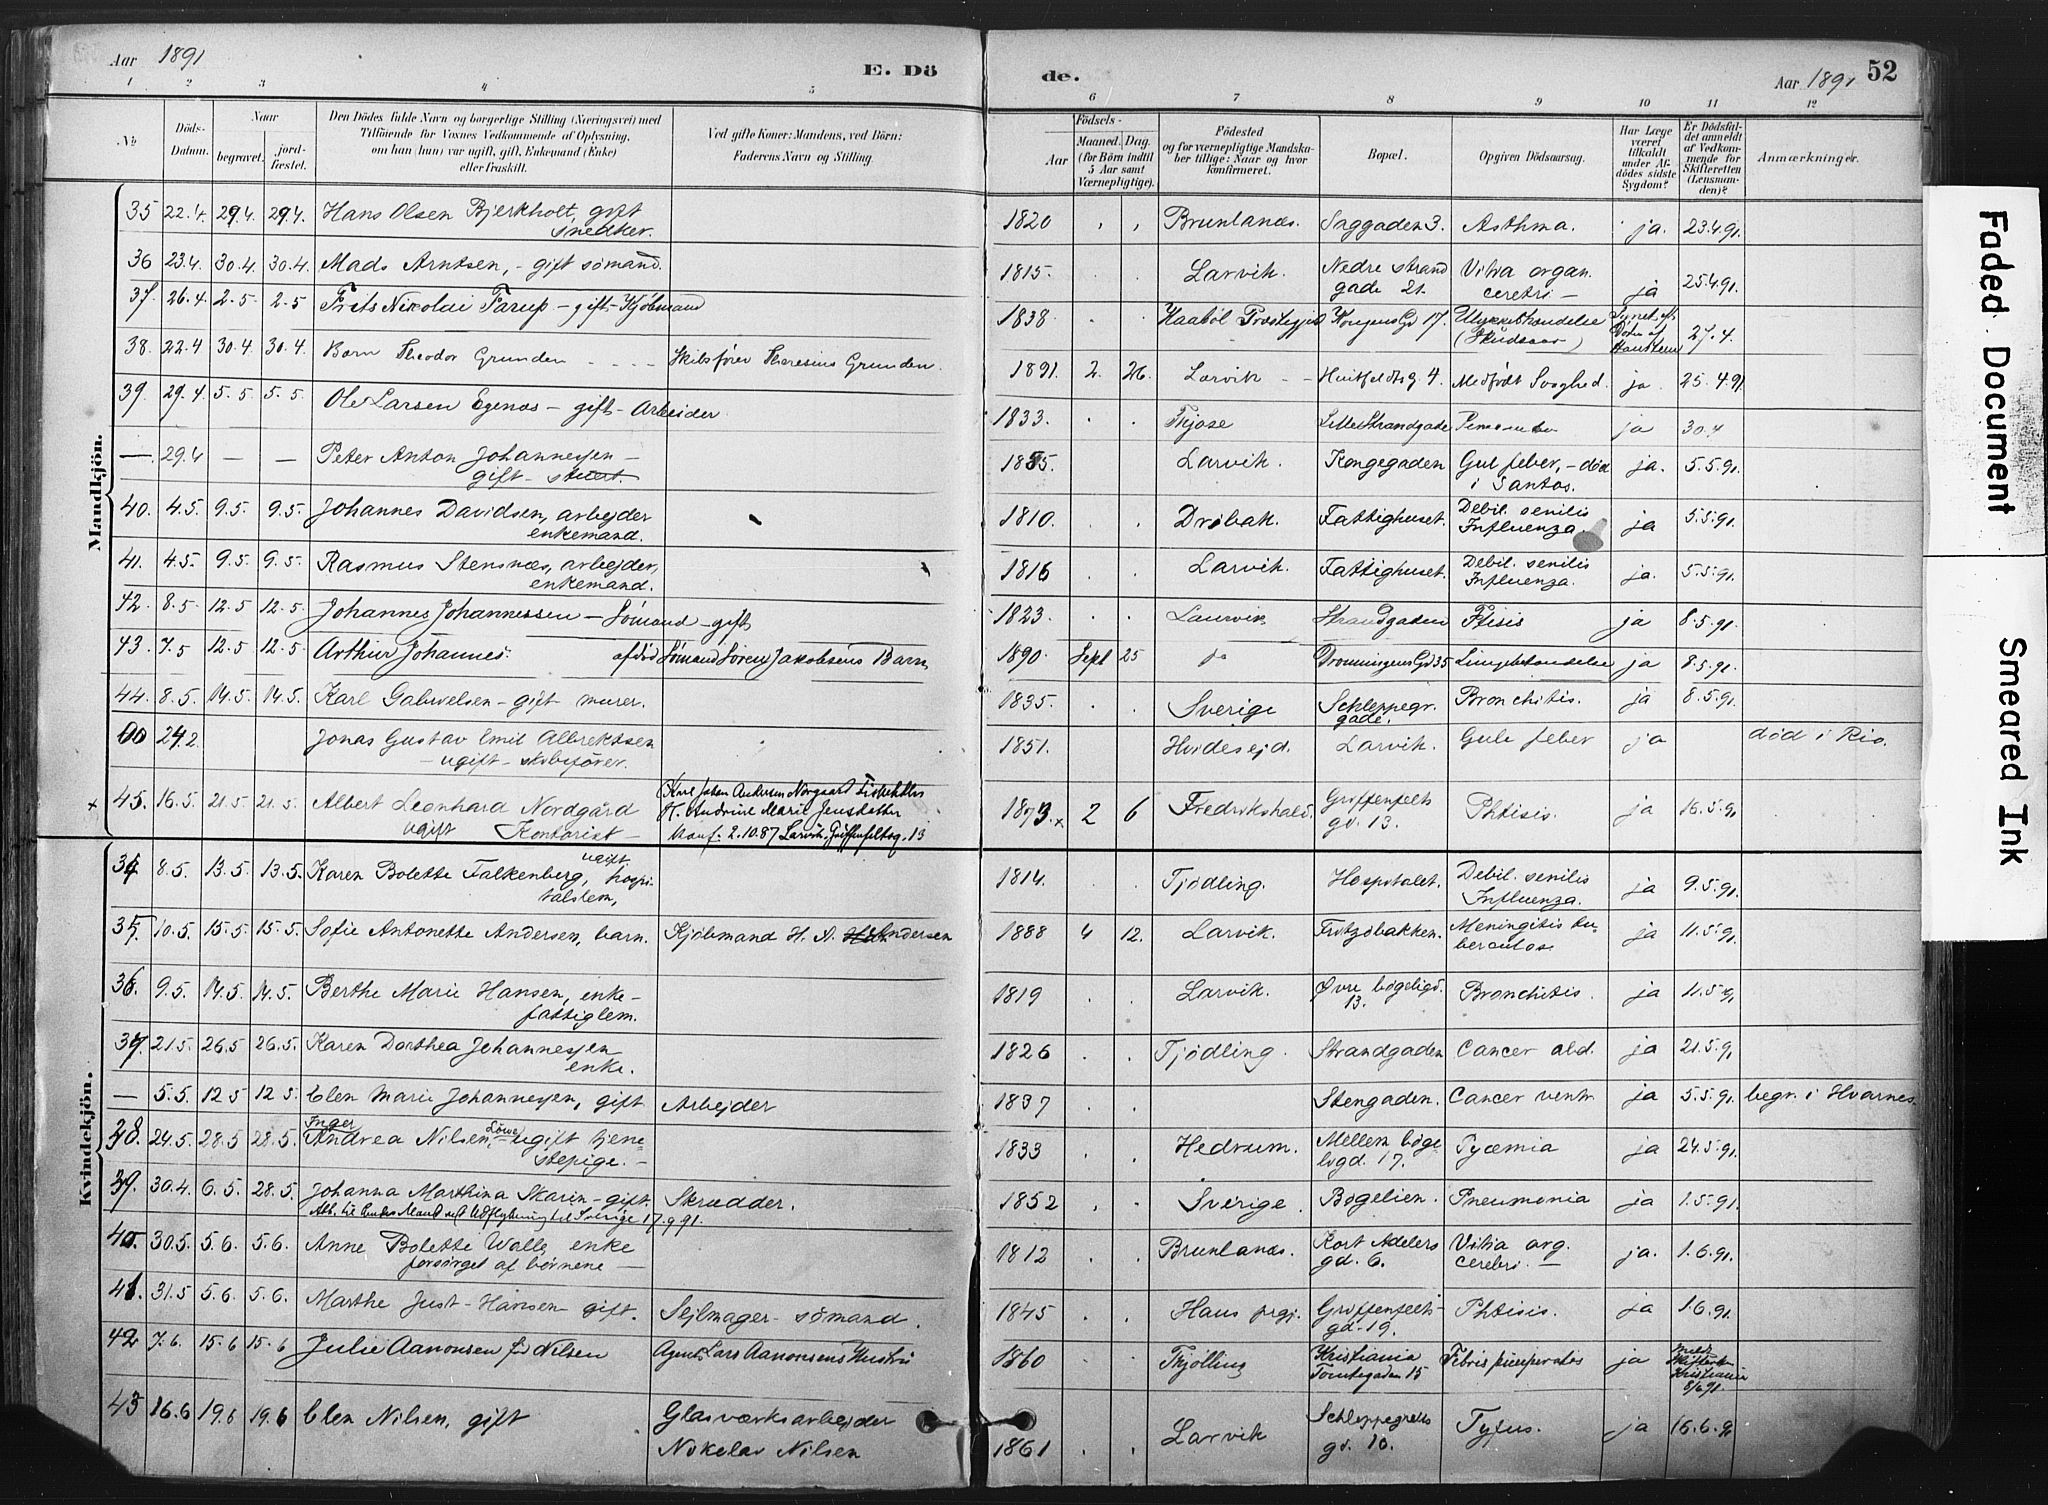 Aar 1891
E. Dö
de.
Aar 1891
52
1 2 3 4 5 6 7 8 9 10 11 12
No
Döds-Datum.
Naar
begravet.
jord-fæstet.
Den Dödes fulde Navn og borgerlige Stilling (Næringsvei) med
Tilföiende for Voxnes Vedkommende af Oplysning,
om han (hun) var ugift, gift, Enkemand (Enke)
eller fraskilt.
Ved gifte Koner: Mandens, ved Börn:
Faderens Navn og Stilling.
Födsels-
Aar
Maaned. Dag.
(for Börn indtil
5 Aar samt
Værnepligtige).
Födested
og for værnepligtige Mandska-
ber tillige: Naar og hvor
konfirmeret.
Bopæl.
Opgiven Dödsaarsag.
Har Læge
været
tilkaldt
under Af-
dödes sidste
Sygdom?
Er Dödsfal-
det anmeldt
af Vedkom-
mende for
Skifteretten
(Lensman-
den)?
Anmærkninger.
Mandkjön.
35 22.4. 29.4. 29.4. Hans Olsen Bjerkholt, gift snedker. 1820 Brunlanæs. Saggaden 3. Asthma. ja. 23.4.91.
36 23.4. 30.4. 30.4. Mads Arntsen, - gift sömand. 1815. Larvik. Nedre strandgade 21. Vitia organ. cerebri — ja 25.4.91.
37. 26.4 2.5 2.5 Frits Nikolai Farup - gift - Kjöbmand 1838 Haaböl Præstegjeld Kongens Gd 17. Ulykkeshændelse 27.4.
38. 22.4 30.4 30.4. Barn Theodor Grunden - - - Skibsförer Theresius Grunden. 1891. 2. 26. Larvik - - Huitfeldtsg. 4. Medfödt Svaghed. ja. 25.4.91
39. 29.4 5.5 5.5. Ole Larsen Egenæs - gift - Arbeider 1833. Tjose Lille Strandgade ja 30.4
— 29.4 — — Peter Anton Johannesen - gift - stuert. 1835. Larvik. Kongegaden Gul feber, - död i Santos. ja. 5.5.91.
40. 4.5. 9.5. 9.5. Johannes Davidsen, arbejder enkemand. 1810. Dröbak. Fattighuset. Debil. senilis Influenza. ja 5.5.91.
41. 4.5. 9.5. 9.5. Rasmus Stensnæs, arbejder, enkemand. 1816 Larvik. Fattighuset. Debil. senilis Influenza. ja. 5.5.91.
42. 8.5. 12.5 12.5. Johannes Johannessen - Sömand - gift 1823. Laurvik Strandgaden Ftisis ja 8.5.91.
43. 7.5 12.5. 12.5. Arthur Johannes. afdöd Sömand Sören Jakobsens Barn 1890. Sept 25 Dronningens Gd 35 Lungebetændelse ja 8.5.91.
44. 8.5. 14.5. 14.5. Karl Gabrielsen - gift murer. 1835. Sverige Schleppegr.gade. Bronchitis. ja 8.5.91.
00 24.2. Jonas Gustav Emil Albrektsen - ugift - skibsförer. 1851. Hvidesejd. Larvik. Gule feber ja död i Rio.
x 45. 16.5. 21.5. 21.5. Albert Leonhard Nordgård ugift Kontorist — Karl Johan Andersen Norgaard
H. Andrine Marie Jensdatter
konf. 2.10.87 Larvik, Griffenfeltsg. 13
1873. x 2 6 Fredrikshald. Griffenfelts gd. 13. Phtisis. ja 16.5.91
Kvindekjön.
34 8.5. 13.5. 13.5. Karen Bolette Falkenberg, ugift, hospitalslem, 1814. Tjödling. Hospitalet. Debil. senilis Influenza. ja 9.5.91.
35. 10.5. 15.5. 15.5. Sofie Antonette Andersen, barn. Kjöbmand H. A. Andersen 1888 4 12. Larvik. Fritzöbakken. Meningitis tuberculosa ja 11.5.91.
36. 9.5. 14.5. 14.5. Berthe Marie Hansen, enke - fattiglem. 1819 Larvik. Øvre bögeligd. 13. Bronchitis. ja 11.5.91
37. 21.5. 26.5 26.5. Karen Dorthea Johannesen enke. 1826 Tjödling. Strandgaden Cancer abd. ja 21.5.91
— 5.5. 12.5 12.5. Elen Marie Johannesen, gift Arbejder 1837 Stengaden. Cancer ventr. ja 5.5.91. begr. i Hvarnes.
38. 24.5. 28.5 28.5. Inger Andrea Nilsen, Löwe - ugift tjenestepige. - 1833 Hedrum. Mellem bögeligd. 17. Pyæmia ja 24.5.91.
39. 30.4. 6.5. 28.5. Johanna Marthina Skarin - gift Skrædder. 1852 Sverige. Bögelien. Pneumonia ja 1.5.91.
Att. til Mand ved Udflytning til Sverige 17.9 91.
40. 30.5. 5.6. 5.6. Anne Bolette Walle, enke forsörget af börnene — 1812 Brunlanæs. Kort Adelers gd. 6. Vitia org. cerebri. — ja. 1.6.91.
41. 31.5 5.6. 5.6. Marthe Just-Hansen gift. Sejlmager - sömand. 1845 Haus prgj. Griffenfelts-gd. 19. Phtisis. ja 1.6.91.
42 7.6. 15.6 15.6 Julie Aanonsen föd Nilsen Agent Lars Aanonsens Hustru 1860 Thjølling Kristiania Tomtegaden 15 Febris puerperalis ja Meldt Skifteretten Kristiania 8/6 91.
43 16.6 19.6 19.6 Elen Nilsen, gift Glasværksarbejder Nikolai Nilsen 1861 Larvik Schleppegrells gd. 10. Tyfus. ja 16.6.91
Faded Document
Smeared Ink